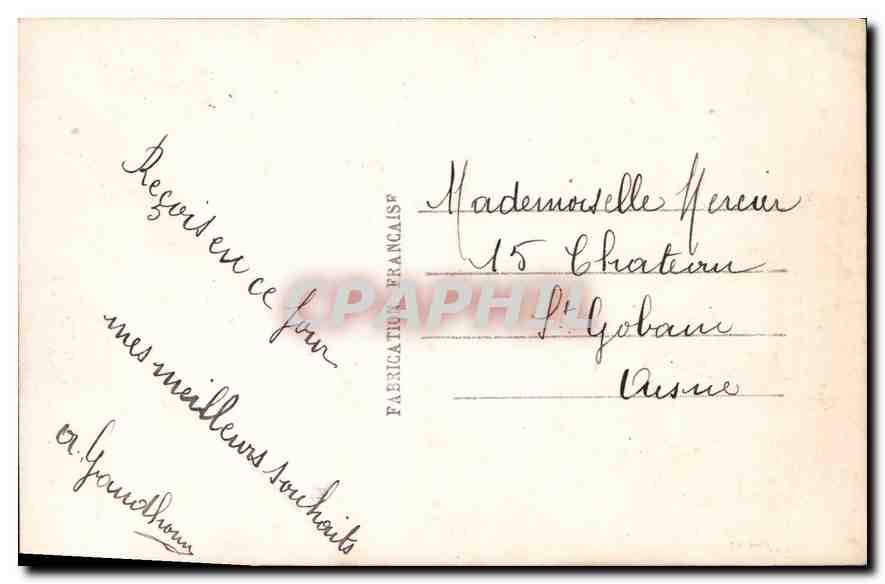 Reçois en ce jour
mes meilleurs souhaits
FABRICATION FRANÇAISE
CPAPHIL
Mademoiselle Mercier
15 Chateau
St Gobain
Aisne